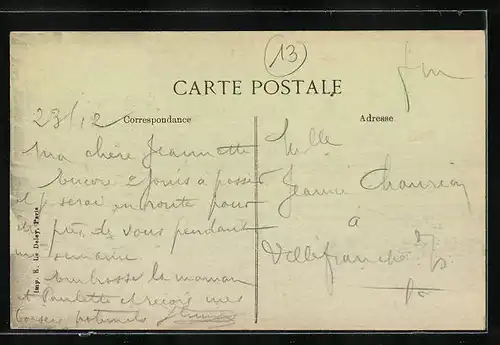 13
fm
CARTE POSTALE
Correspondance
Adresse
23/12
Ma chère Jeannette
Encore 2 jours a passer
et je serai en route pour
être près de vous pendant
une semaine
Embrasse la maman
et Paulette et reçois mes
baisers paternels
Melle
Jeanne
à
Villefranche
Imp. E. Le Deley, Paris